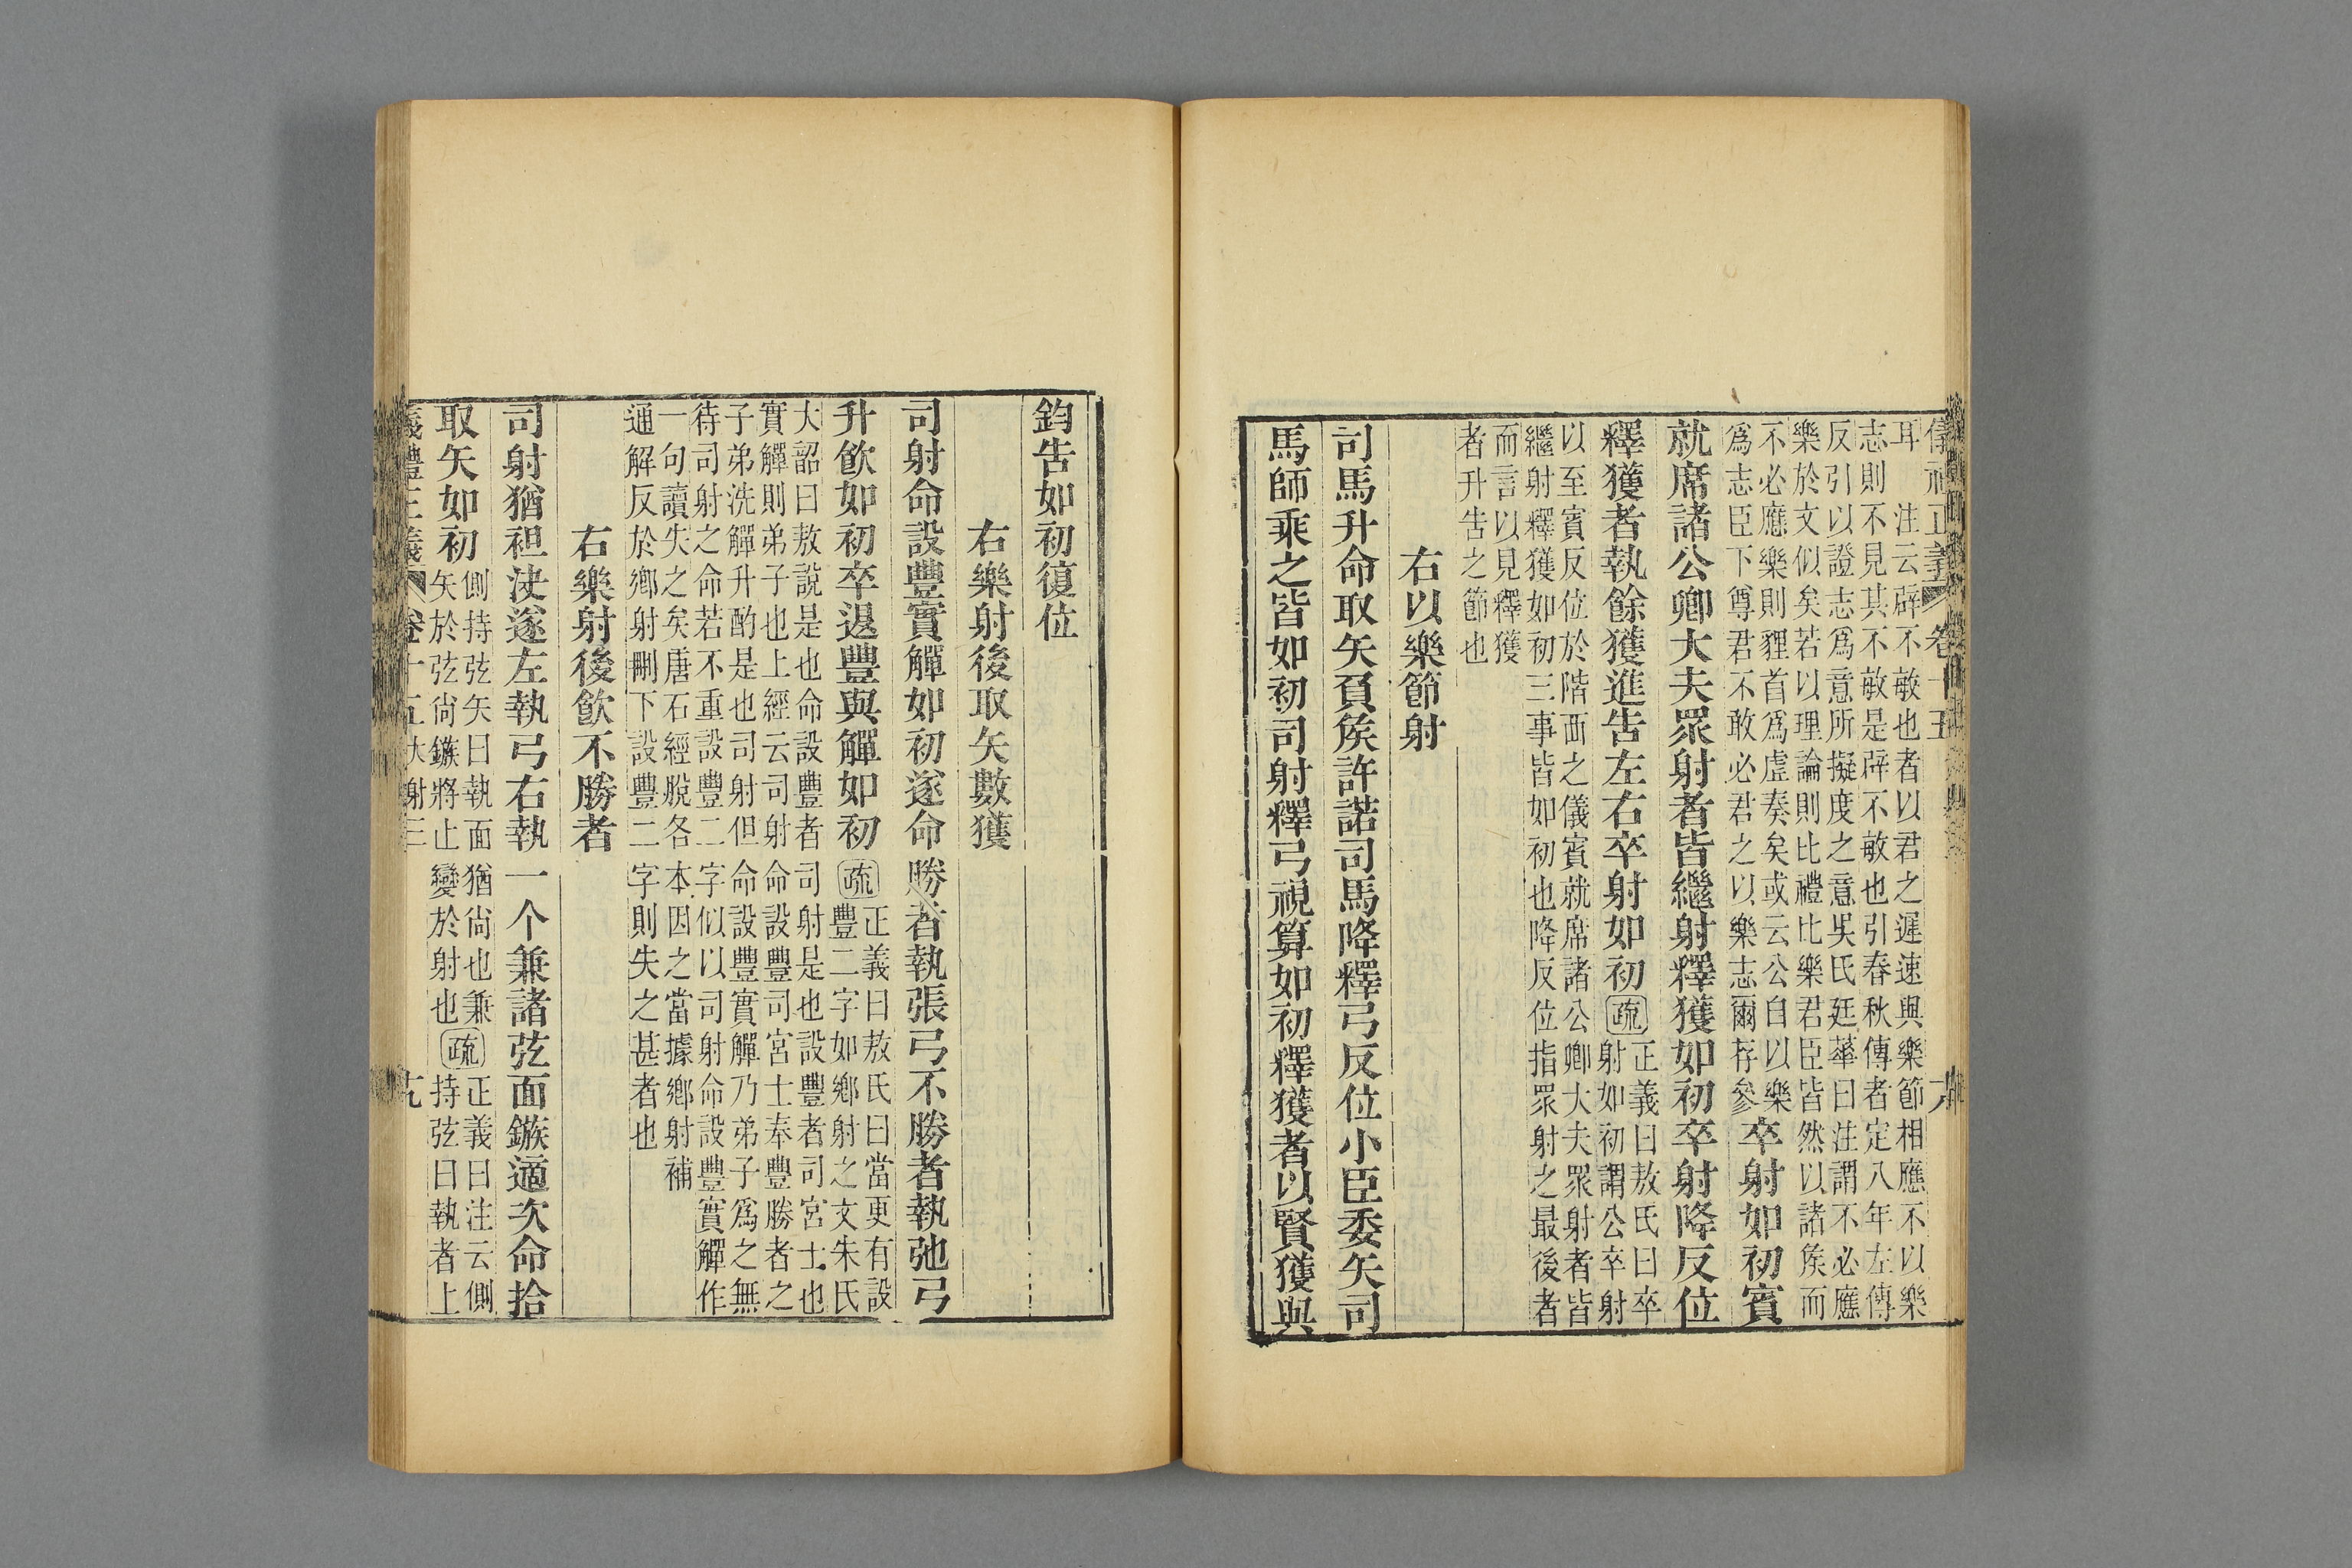 儀禮正義 卷十五
耳 注云辟不敏也者以君之遲速與樂節相應不以樂
志則不見其不敏是辟不敏也引春秋傳者定八年左傳
反引以證志爲意所擬度之意吳氏廷華曰注謂不必應
樂於文似矣若以理論則比禮比樂君臣皆然以諸侯而
不必應樂則貍首爲虛奏矣或云公自以樂
爲志臣下尊君不敢必君之以樂志爾存參
卒射如初賓
就席諸公卿大夫眾射者皆繼射釋獲如初卒射降反位
釋獲者執餘獲進告左右卒射如初
疏
正義曰敖氏曰卒
射如初謂公卒射
以至賓反位於階西之儀賓就席諸公卿大夫眾射者皆
繼射釋獲如初三事皆如初也降反位指眾射之最後者
而言以見釋獲
者升告之節也
右以樂節射
司馬升命取矢負侯許諾司馬降釋弓反位小臣委矢司
馬師乘之皆如初司射釋弓視算如初釋獲者以賢獲與
鈞告如初復位
右樂射後取矢數獲
司射命設豐實觶如初遂命勝者執張弓不勝者執弛弓
升飲如初卒退豐與觶如初
疏
正義曰敖氏曰當更有設
豐二字如鄉射之文朱氏
大韶曰敖說是也命設豐者司射是也設豐者司宮士也
實觶則弟子也上經云司射命設豐司宮士奉豐勝者之
子弟洗觶升酌是也司射但命設豐實觶乃弟子爲之無
待司射之命若不重設豐二字似以司射命設豐實觶作
一句讀失之矣唐石經脫各本因之當據鄉射補
通解反於鄉射刪下設豐二字則失之甚者也
右樂射後飲不勝者
司射猶袒決遂左執弓右執一个兼諸弦面鏃適次命拾
取矢如初
側持弦矢曰執面猶尚也兼
矢於弦尚鏃將止變於射也
疏
正義曰注云側
持弦曰執者上
儀禮正義 卷十五 大射三 十九